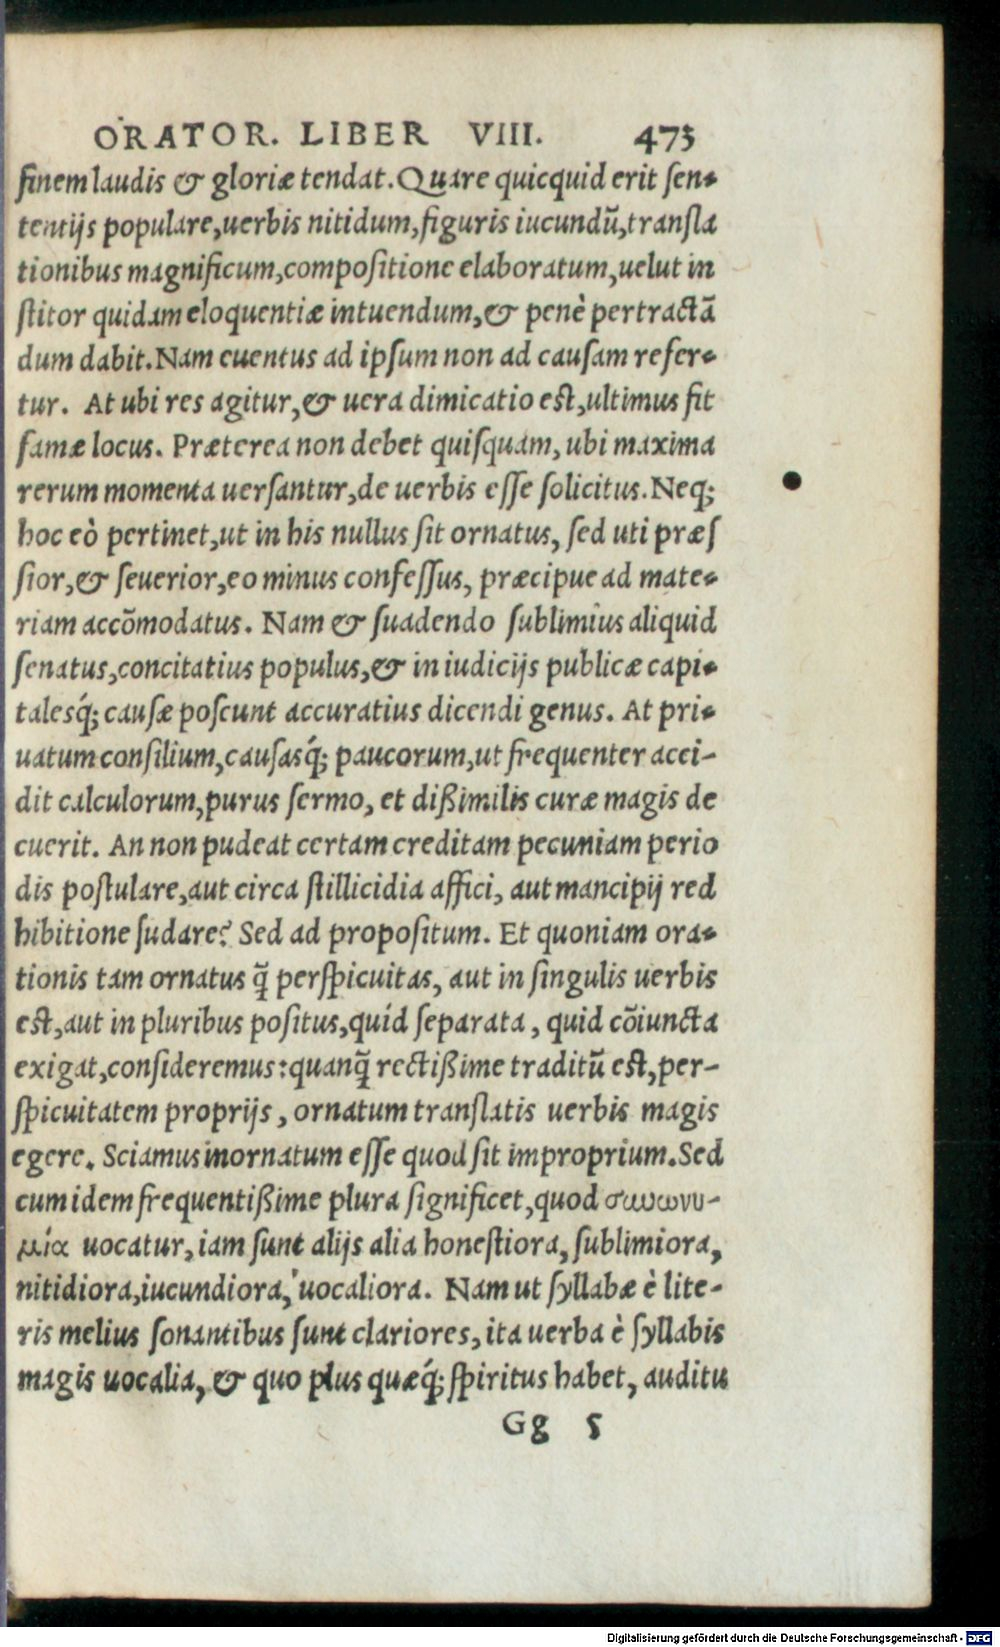 ORATOR. LIBER VIII. 473
finem laudis & gloriæ tendat. Quare quicquid erit sen-
tentijs populare, uerbis nitidum, figuris iucundũ, transla
tionibus magnificum, compositione elaboratum, uelut in
stitor quidam eloquentiæ intuendum, & penè pertractã
dum dabit. Nam euentus ad ipsum non ad causam refer-
tur. At ubi res agitur, & uera dimicatio est, ultimus sit
famæ locus. Præterea non debet quisquam, ubi maxima
rerum momenta uersantur, de uerbis esse solicitus. Neq;
hoc eò pertinet, ut in his nullus sit ornatus, sed uti præs
sior, & seuerior, eo minus confessus, præcipue ad mate-
riam accõmodatus. Nam & suadendo sublimius aliquid
senatus, concitatius populus, & in iudicijs publicæ capi-
talesq́; causæ poscunt accuratius dicendi genus. At pri-
uatum consilium, causasq́; paucorum, ut frequenter acci-
dit calculorum, purus sermo, et dißimilis curæ magis de
cuerit. An non pudeat certam creditam pecuniam perio
dis postulare, aut circa stillicidia affici, aut mancipij red
hibitione sudare? Sed ad propositum. Et quoniam ora-
tionis tam ornatus q̃ perspicuitas, aut in singulis uerbis
est, aut in pluribus positus, quid separata, quid cõiuncta
exigat, consideremus: quanq̃ rectißime traditũ est, per-
spicuitatem proprijs, ornatum translatis uerbis magis
egere. Sciamus inornatum esse quod sit improprium. Sed
cum idem frequentißime plura significet, quod συνωνυ-
μία uocatur, iam sunt alijs alia honestiora, sublimiora,
nitidiora, iucundiora, uocaliora. Nam ut syllabæ è lite-
ris melius sonantibus sunt clariores, ita uerba è syllabis
magis uocalia, & quo plus quæq́; spiritus habet, auditu
Gg 5
Digitalisierung gefördert durch die Deutsche Forschungsgemeinschaft - DFG